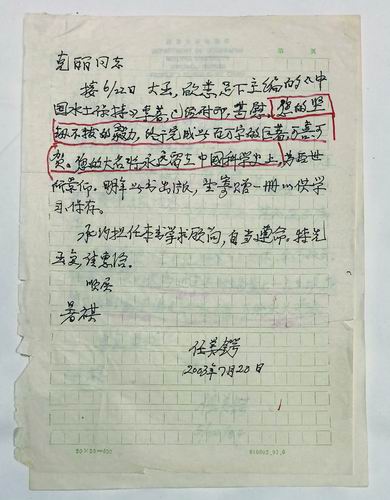 克丽同志
接6/22日大函,欣悉足下主编的《中
国水土保持》专著,已经付印,甚慰。您的坚
韧不拔的毅力,终于完成此百万字的巨著,可喜可
贺。您的大名将永远留在中国科学史上,为后世
所景仰。明年此书出版,望寄赠一册以供学
习保存。
承约担任本书学术顾问,自当遵命。特先
函复,请察洽。
顺颂
暑祺
任美锷
2003年7月20日
第 页
20×20=400